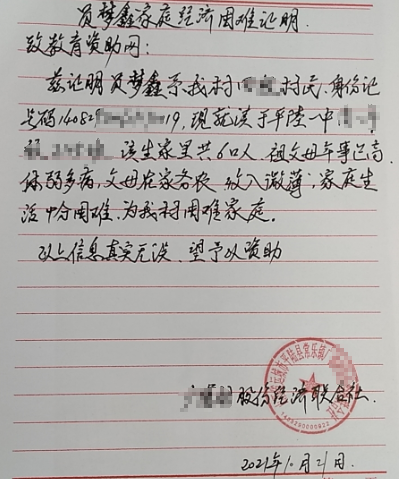 员梦鑫家庭经济困难证明.
致教育资助网:
兹证明员梦鑫系我村村民,身份证
号码140829,现就读于平陆一中
该生家里共6口人,祖父母年事已高,
体弱多病,父母在家务农,收入微薄,家庭生
活十分困难,为我村困难家庭.
以上信息真实无误,望予以资助
平陆县常乐镇
股份经济联合社.
2021年10月21日.